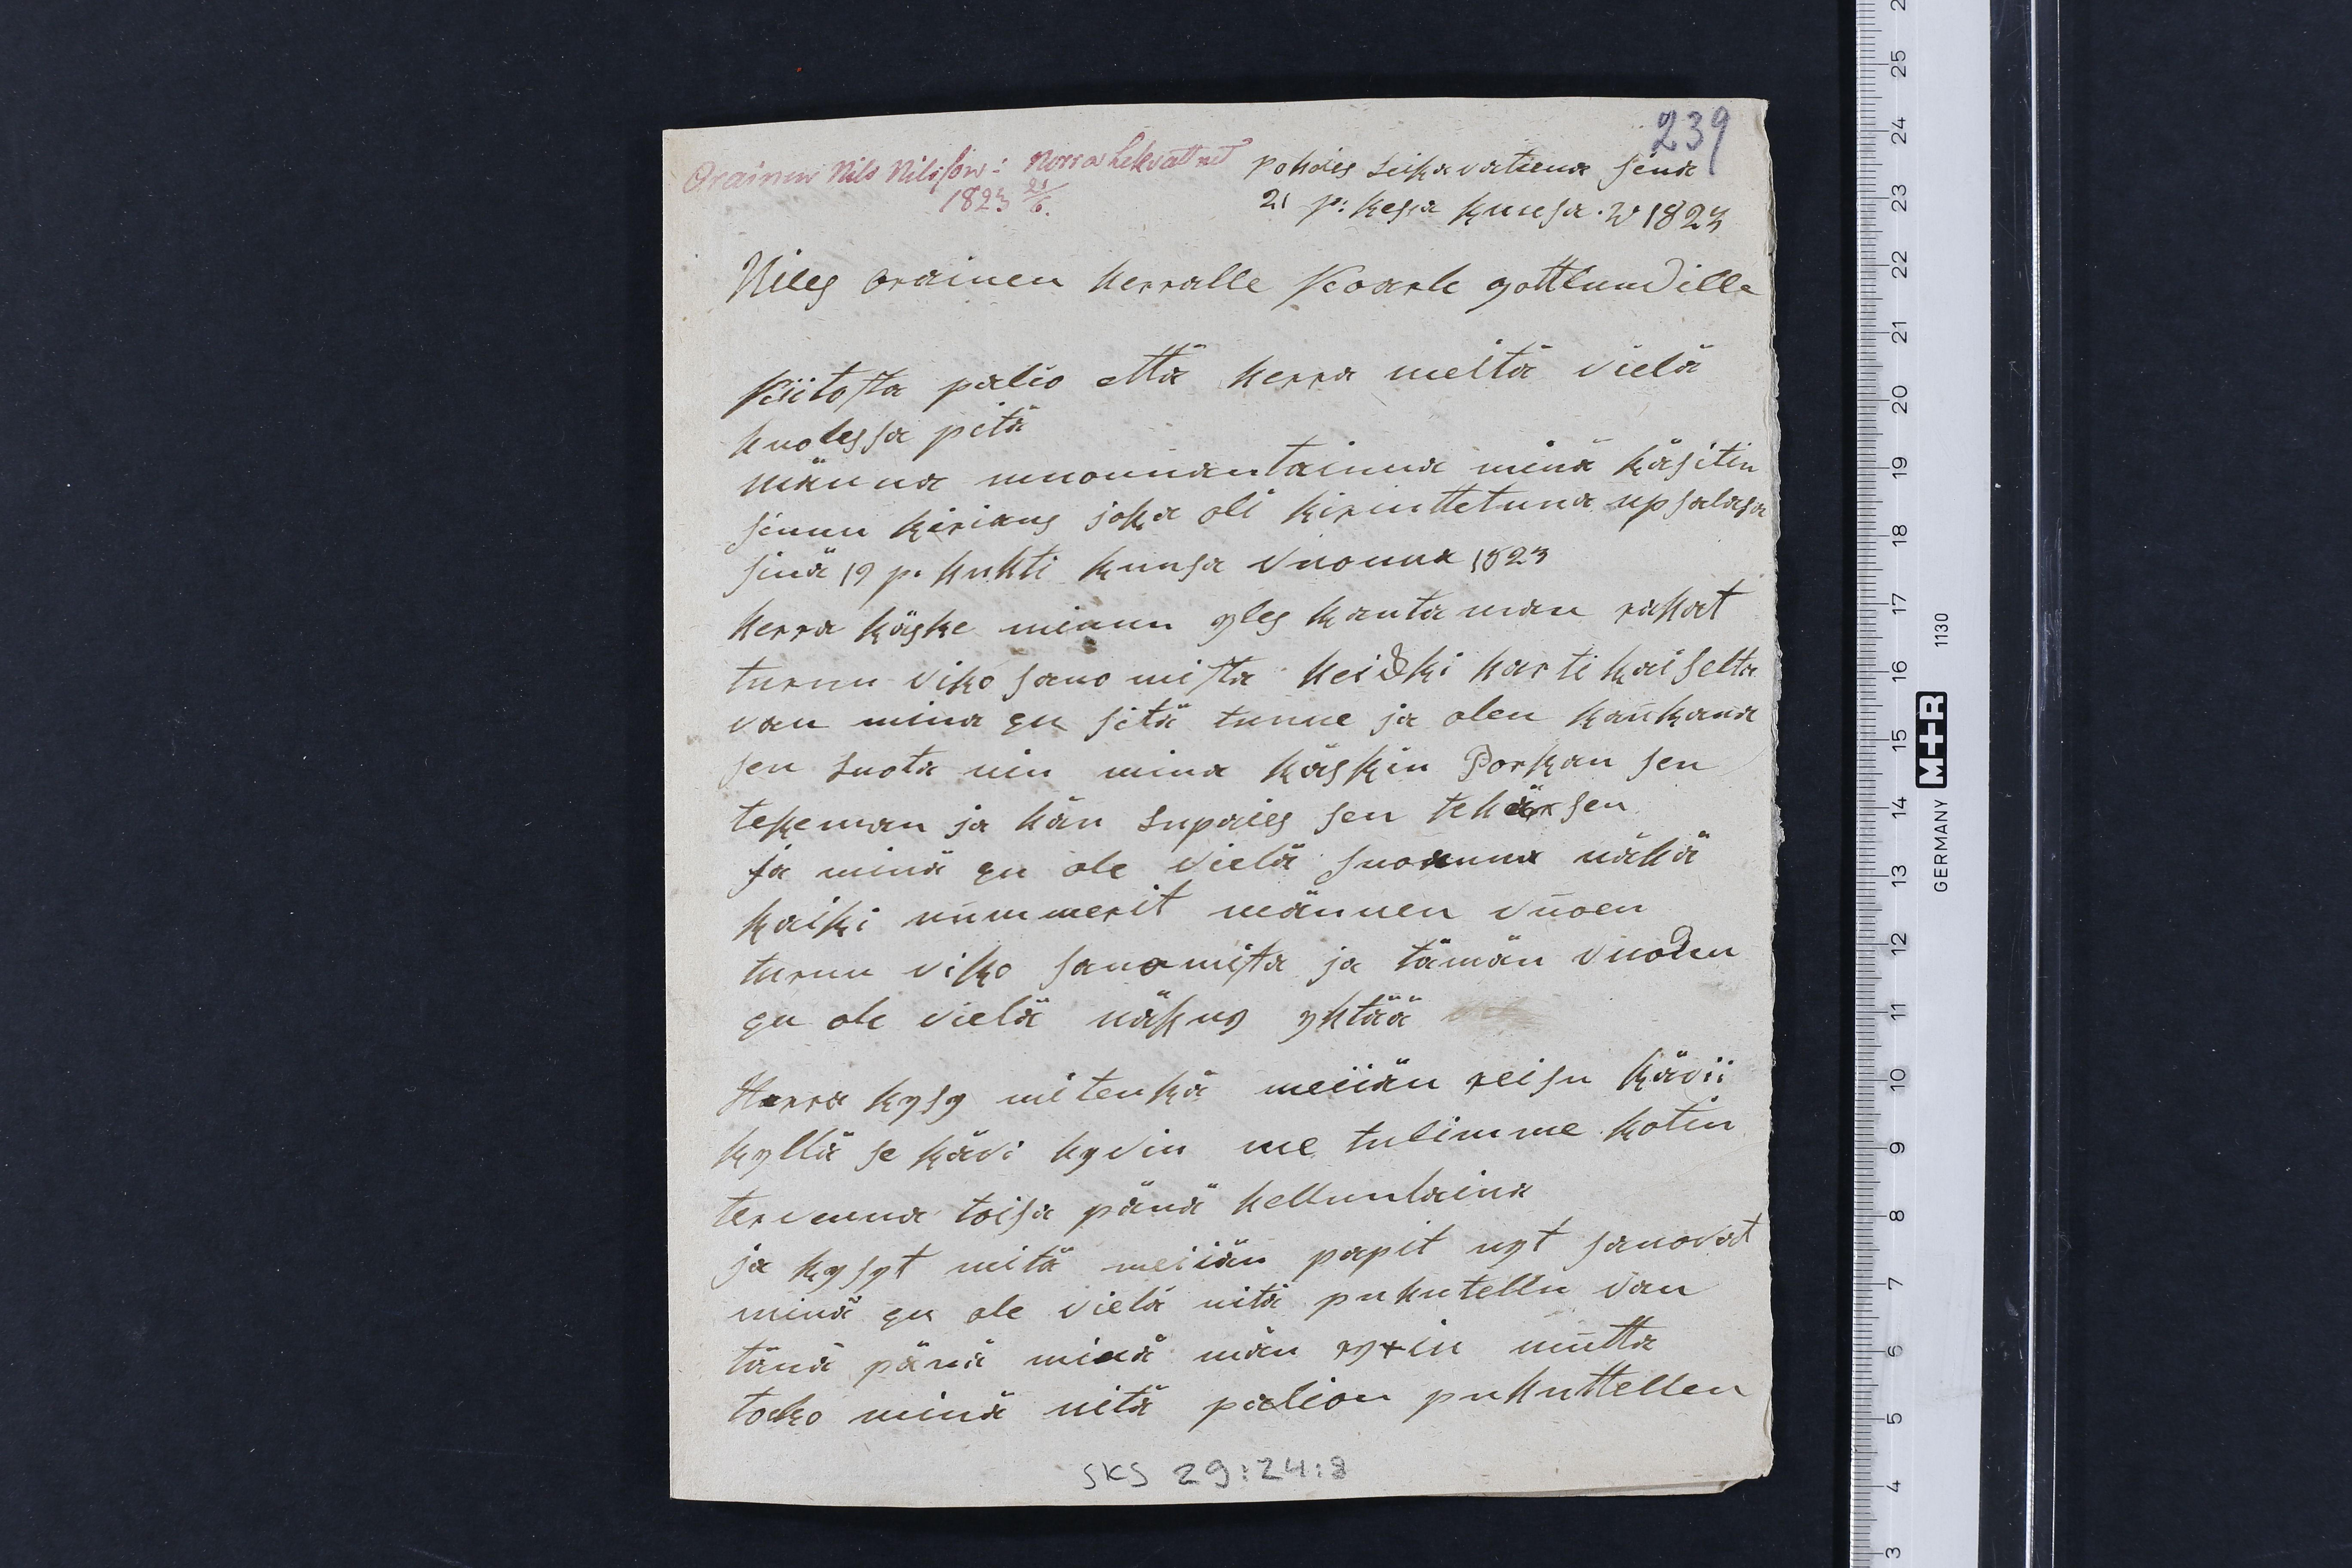 239
Orainen Nils Nilsson: Norra Lekvattnet
1823 21/6.
pohdies Leikavatiena sinä
21 p: kessa kuusa. W 1823
Niles orainen herralle Koarle gottlundille
Kiitosta palio että herra meitä vielä
huolessa pitä
männa muonnantainna minä käsitin
sinun kirians joka oli kiriuttetuna upsalasa
sinä 19 p. huhti kuusa vuonna 1823
herra käske minun yles kantaman rahat
turun viko sanomista heikki kartikaiselta
van mina en sitä tunne ja olen kaukana
sen Luota nin mina käskin Porkan sen
tekeman ja hän Lupaies sen tehäxsen
ja minä en ole vielä suoanna nähä
kaiki nummerit männen vuoen
turun viko sanomista ja tämän vuoden
en ole vielä nähny yhtää
Herra kysy mitenkä meiiän reisu kävii
kyllä se kävi hyvin me tulimme kotin
tervenna toisa pänä helluntaina
ja kysyt mitä meiiän papit nyt sanovat
minä en ole vielä nitä puhutellu van
tänä pänä minä män ryxin mutta
toko minä nitä palion puhuttellen
SKS 29:24:8
25
24
23
22
21
20
19
18
17
16
15
14
13
12
11
10
9
8
7
6
5
4
3
GERMANY M+R 1130